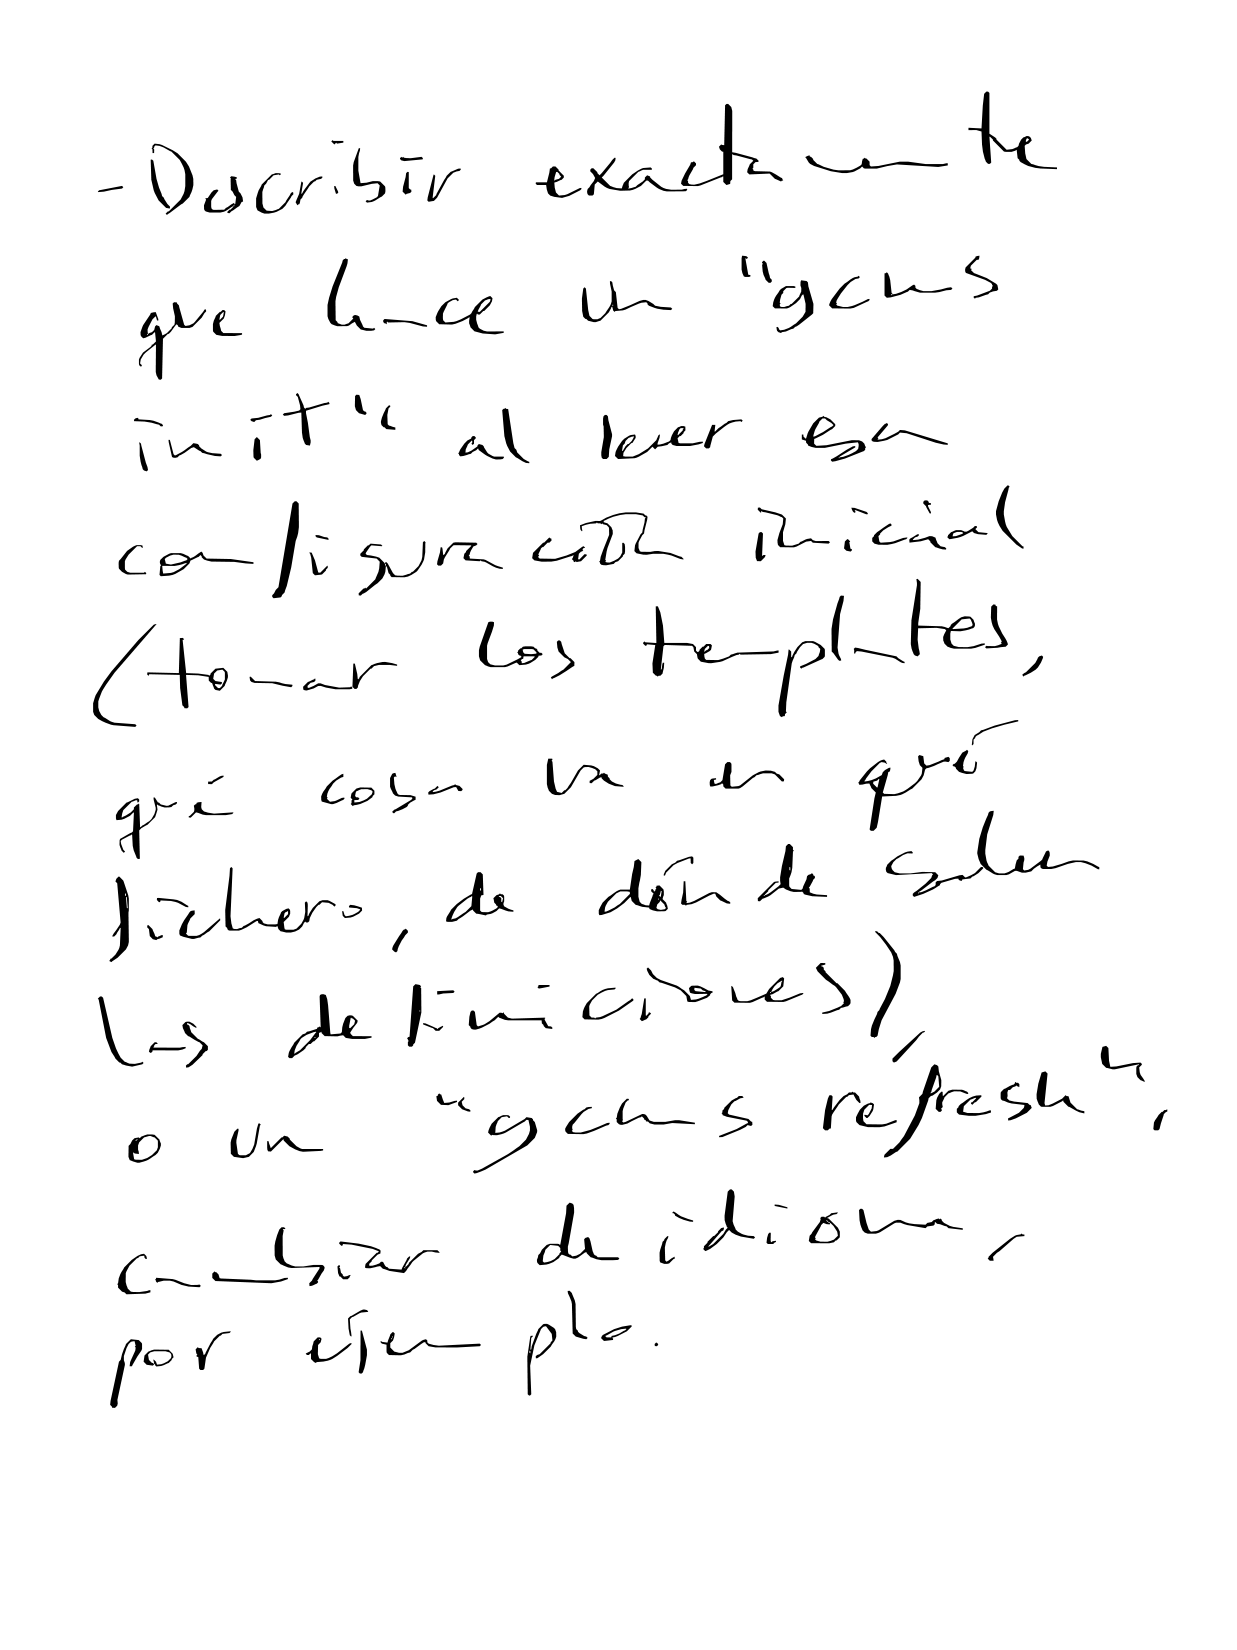 - Describir exactamente
que hace un "gcms
init" al leer esa
configuración inicial
(tomar los templates,
qué cosa va en qué
fichero, de dónde salen
las definiciones),
o un "gcms refresh",
cambiar de idioma,
por ejemplo.